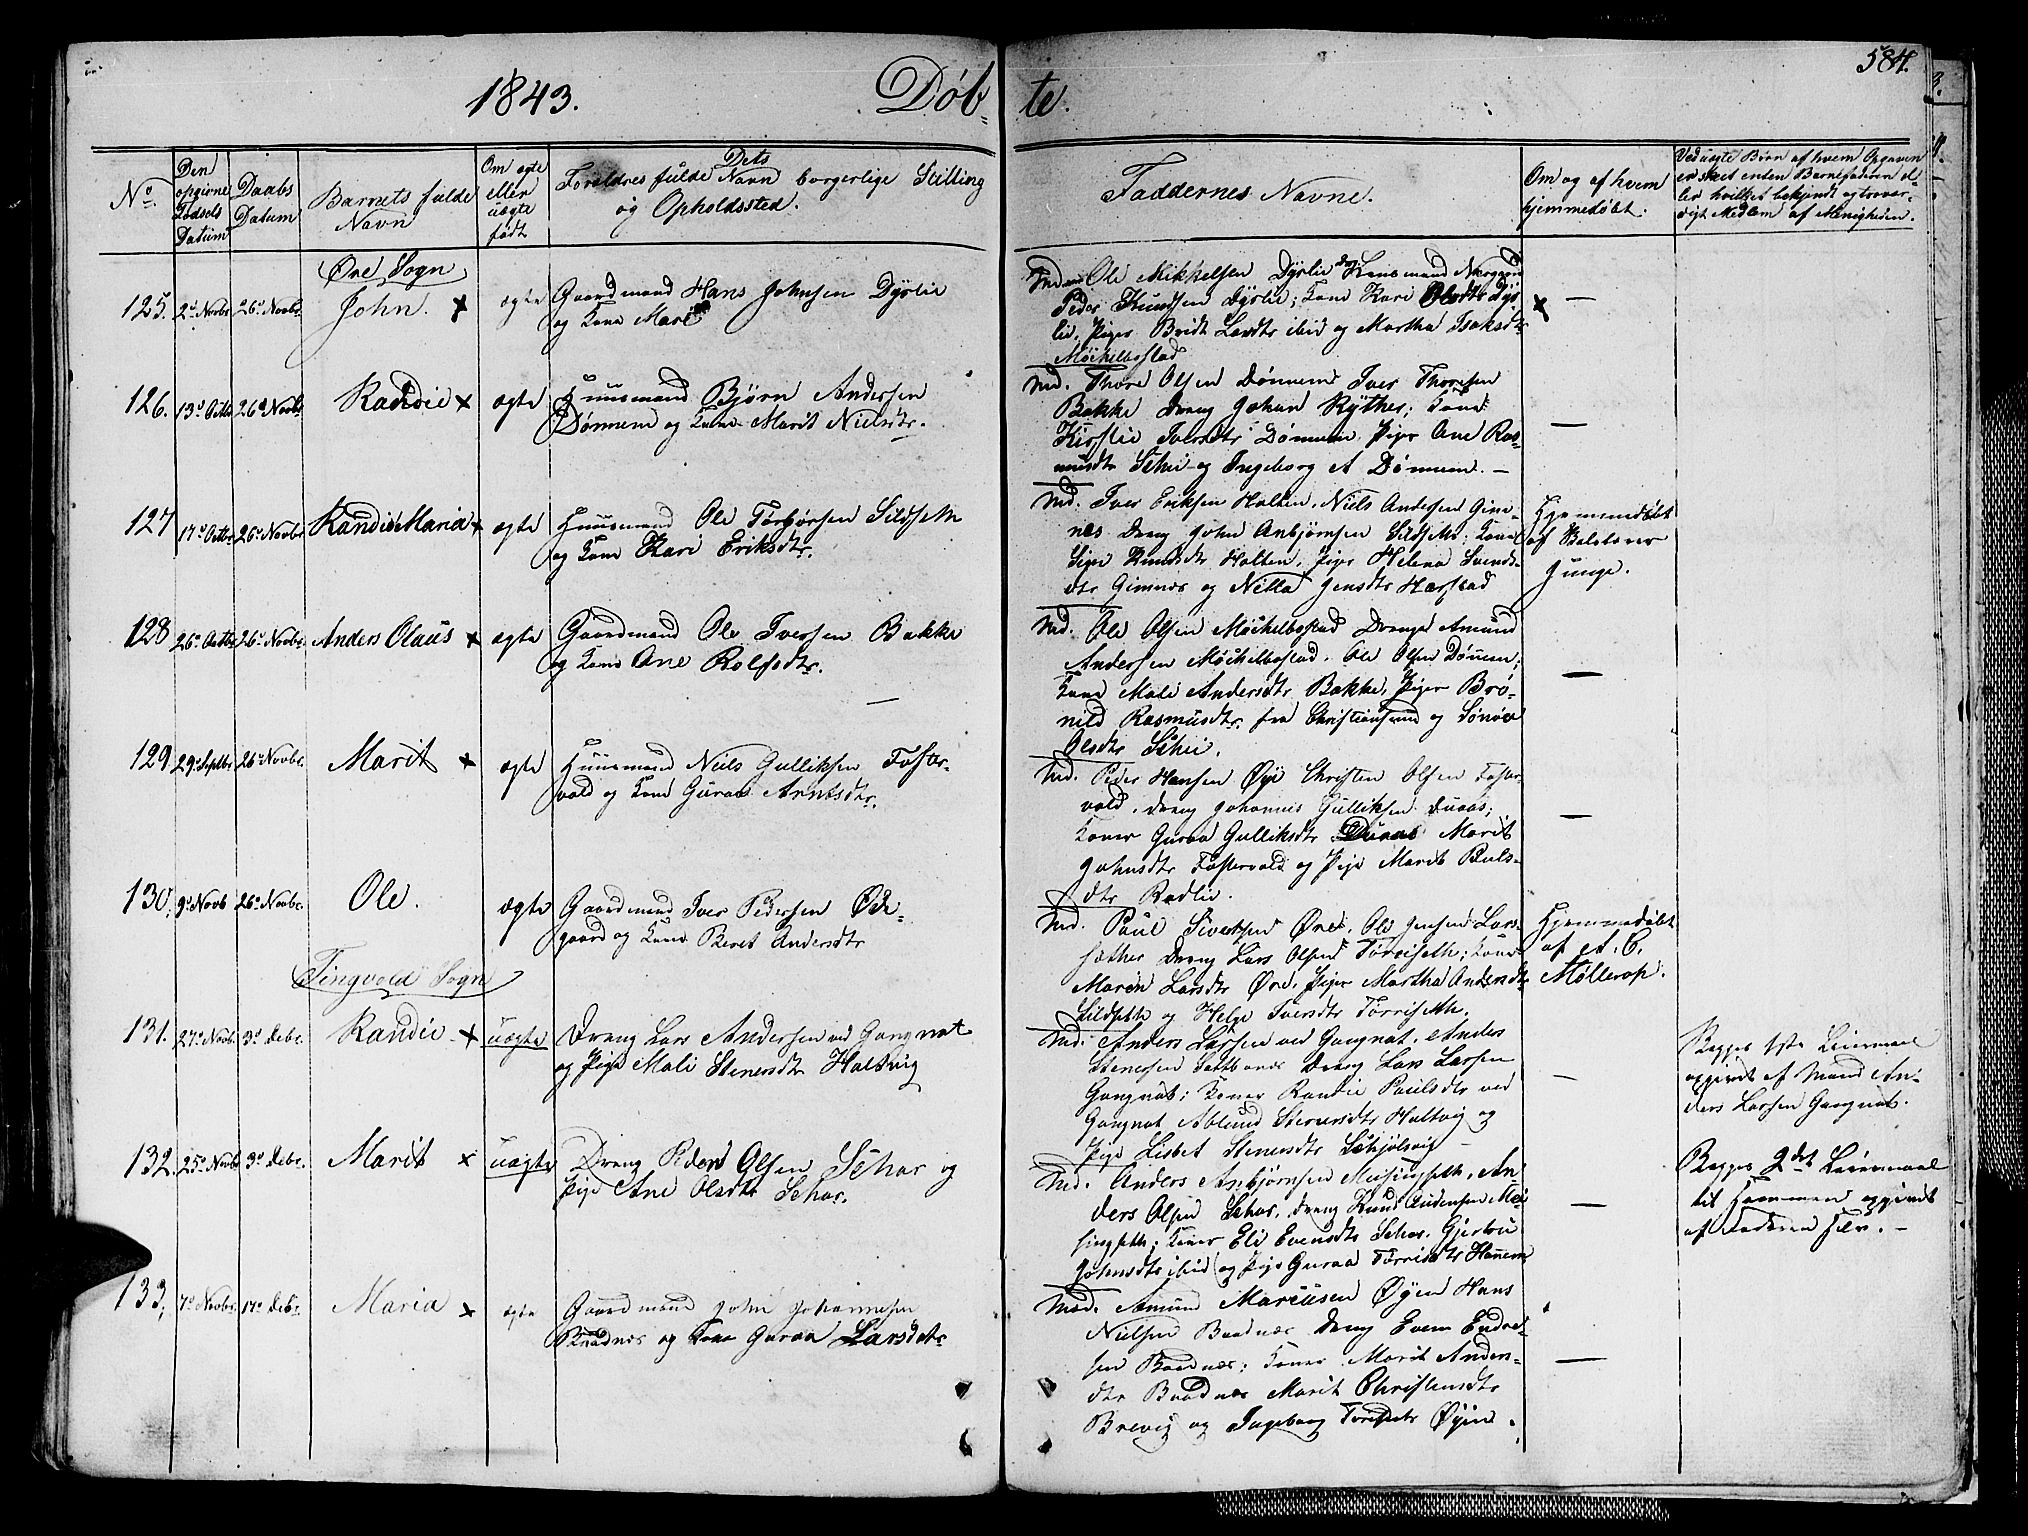 584.
1843. Døb=te.
No.
Den opgivne Fødsels Datum
Daabs Datum
Barnets fulde Navn
Om ægte eller uægte født
Forældres fulde Navn Dets borgerlige Stilling og Opholdssted.
Faddernes Navne.
Om og af hvem hjemmedøbt.
Ved uægte Børn af hvem Opgaven er skeet enten Barnefaderen eller hvilket bekjendt og troværdigt Medlem af Menigheden.
Øre Sogn
125. 2d Novbr 26d Novbr. John. x ægte Gaardmand Hans Johnsen Dyslie
og Kone Mari
Ole Mikkelsen Dyslie
Peder Knudsen Dyslie; Kone Kari Olsdtr Dys
lie, Piger Bridt Larsdtr ibid og Martha Isaksdtr
Møchelbostad
126. 13d Octbr 26d Novbr Randie x ægte Huusmand Bjørn Andersen
Dønnem og Kone Marit Nielsdtr.
Md. Thore Olsen Dønnem Iver Thoresen
Bakke Dreng Johan Rÿther; Kone
Kirstie Iversdtr Dønnem, Piger Ane Ras=
musdtr Schei og Ingeborg A Dønnem. —
127 17d Octbr 26d Novbr Randie Maria x ægte Huusmand Ole Torbørsen Sildseth
og Kone Kari Eriksdtr.
Md. Iver Eriksen Holten, Niels Andersen Gim=
nes Dreng John Anbjørnsen Sildseth; Kone
Siger Knudsdtr Holten, Piger Helena Svends
dtr Gimnæs og Nilla Jensdtr Harstad
Hjemmedøbt
af
Junge.
128 26d Octbr 26d Novbr. Anders Olaus x ægte Gaardmand Ole Iversen Bakke
og Kone Ane Rolfsdtr.
Md. Ole Olsen Møchelbostad Drenge Amund
Andersen Møchelbostad. Ole Olsen Dønnem;
Kone Mali Andersdtr Bakke, Piger Brø=
nild Rasmusdtr. fra Christiansund og
Olsdtr Schei.
129. 29d Septbr. 26d Novbr. Marit x ægte Huusmand Niels Gulliksen Foster=
vold og Kone Guraa Arntsdtr.
Md. Peder Hansen Øye Christen Olsen Foster
vold. Dreng Johannes Gulliksen Duaas;
Koner Guraa Gulliksdtr Duaas Marit
Johnsdtr Fostervold og Pige Marit Pauls=
dtr Rødlie.
130. 9d Novb 26d Novbr. Ole. ægte Gaardmand Iver Pedersen Øde=
gaard og Kone Beret Andersdtr
Md. Paul Sivertsen Øre, Ole Jensen Lars
sæther Dreng Lars Olsen Torvisseth; Kone
Maren Larsdtr Øre, Piger Martha Andersdtr
Sildseth og Helge Iversdtr Torvisseth.
Hjemmedøbt
af A. C.
Møllerop.
Tingvold Sogn
131. 27d Novb. 3d Debr. Randie x uægte Dreng Lars Andersen ved Gangnat
og Pige Mali Stenersdtr Holtvig
Md. Anders Larsen ved Gangnat. Anders
Stenersen Dreng Lars Larsen
Gangnat; Koner Randie Paulsdtr ved
Gangnat Ablund Stenersdtr Holtvig og
Pige Lisbet Stenersdtr Schjølsvig
Begges 1ste Leiermaal
opgivet af Mand An=
ders Larsen Gangnat.
132. 25d Novbr 3d Debr. Marit x uægte Dreng Peder Olsen Schar og
Pige Ane Olsdtr Schar.
Md. Anders Anbjørnsen Meisingseth, An
ders Olsen Schar, Dreng Knud Andersen Mei
singseth; Koner Eli Evensdtr Schar, Gjertru
Johnsdtr ibid og Pige Guraa Torrisdtr Hanem
Begges 2det Leiermaal
til Hammen opgivet
af Faderen selv. —
133, 7d Novbr. 17d Debr. Maria x ægte Gaardmand John Johannesen
Baadnæs og Kone Guraa Larsdatr
Md. Amund Marcusen Øÿen Hans
Nielsen Baadnæs Dreng Even Endre=
sen Baadnæs; Koner Marit Anders=
dtr Baadnæs Marit Christensdtr
Brevig og Ingeborg Øÿen.